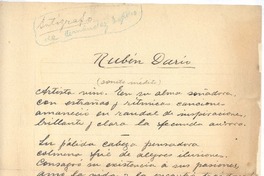 Autógrafo
de
Rubén Darío
(soneto inédito)
Artista vino. En su alma soñadora,
con extrañas y rítmicas canciones
amaneció un raudal de inspiraciones,
brillante y clara la fecunda aurora.
Su pálida cabeza pensadora
colmena fué de alegres ilusiones.
Consagró su existencia a sus pasiones